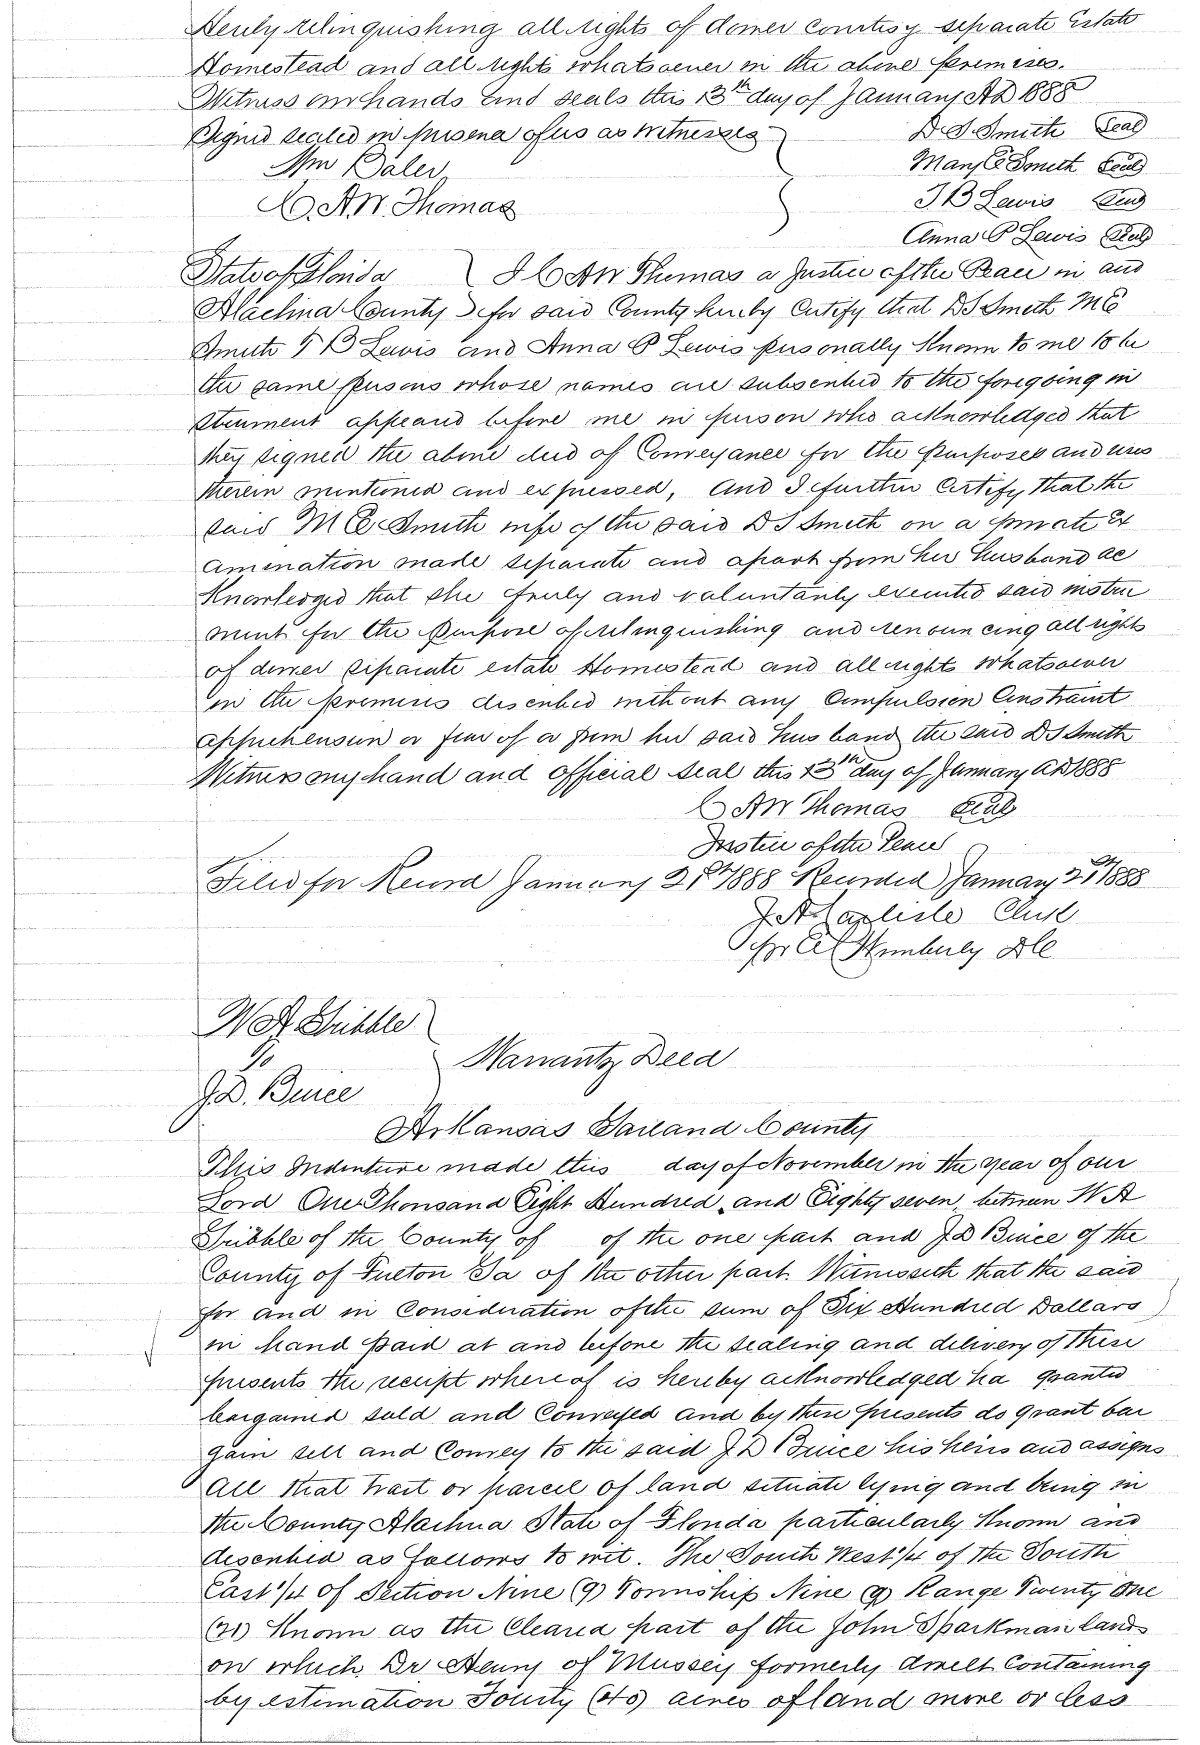 Hereby relinquishing all rights of dower courtisy separate Estate
Homestead and all rights whatsoever in the above premises.
Witness our hands and seals this 13th day of January AD 1888
Signed sealed in presence of us as witnesses
D. S. Smith Seal
Wm Baler
Mary E Smith Seal
C. A. W. Thomas
T B Lewis Seal
Anna P Lewis Seal
State of Florida I C A W Thomas a Justice of the Peace in and
Alachua County for said County hereby Certify that D S Smith M E
Smith T B Lewis and Anna P Lewis personally Known to me to be
the same persons whose names are subscribed to the foregoing in
strument appeard before me in person who acknowledged that
they signed the above deed of Conveyance for the purposes and uses
therein mentioned and expressed, And I further Certify that the
said M E Smith wife of the said D S Smith on a private Ex
amination made separate and apart from her husband ac
Knowledged that she freely and voluntarily executed said instru
ment for the purpose of relinquishing and renouncing all rights
of dower separate estate Homestead and all rights whatsoever
in the premises described without any Compulsion Constraint
apprehension or fear of or from her said husband the said D S Smith
Witness my hand and official seal this 13th day of January AD 1888
C A W Thomas Seal
Justice of the Peace
Filed for Record January 21st 1888 Recorded January 21st 1888
J. A. Carlisle Clerk
pr Wimberly DC
W A Gribble
to
Warranty Deed
J. D. Buice
Arkansas Garland County
This Indenture made this day of November in the year of our
Lord One Thousand Eight Hundred and Eighty seven between W A
Gribble of the County of of the one part and J D Buice of the
County of Fulton Ga of the other part. Witnesseth that the said
for and in Consideration of the sum of Six Hundred Dollars
in hand paid at and before the sealing and delivery of these
presents the receipt whereof is hereby acknowledged ha granted
bargained sold and Conveyed and by these presents do grant bar
gain sell and Convey to the said J D Buice his heirs and assigns
All that tract or parcel of land situate lying and being in
the County Alachua State of Florida particularly Known and
described as follows to wit. The South West 1/4 of the South
East 1/4 of Section Nine (9) Township Nine (9) Range Twenty One
(21) Known as the Cleared part of the John Sparkman lands
on which Dr Henry of Mussey formerly dwelt Containing
by estimation Fourty (40) acres of land more or less